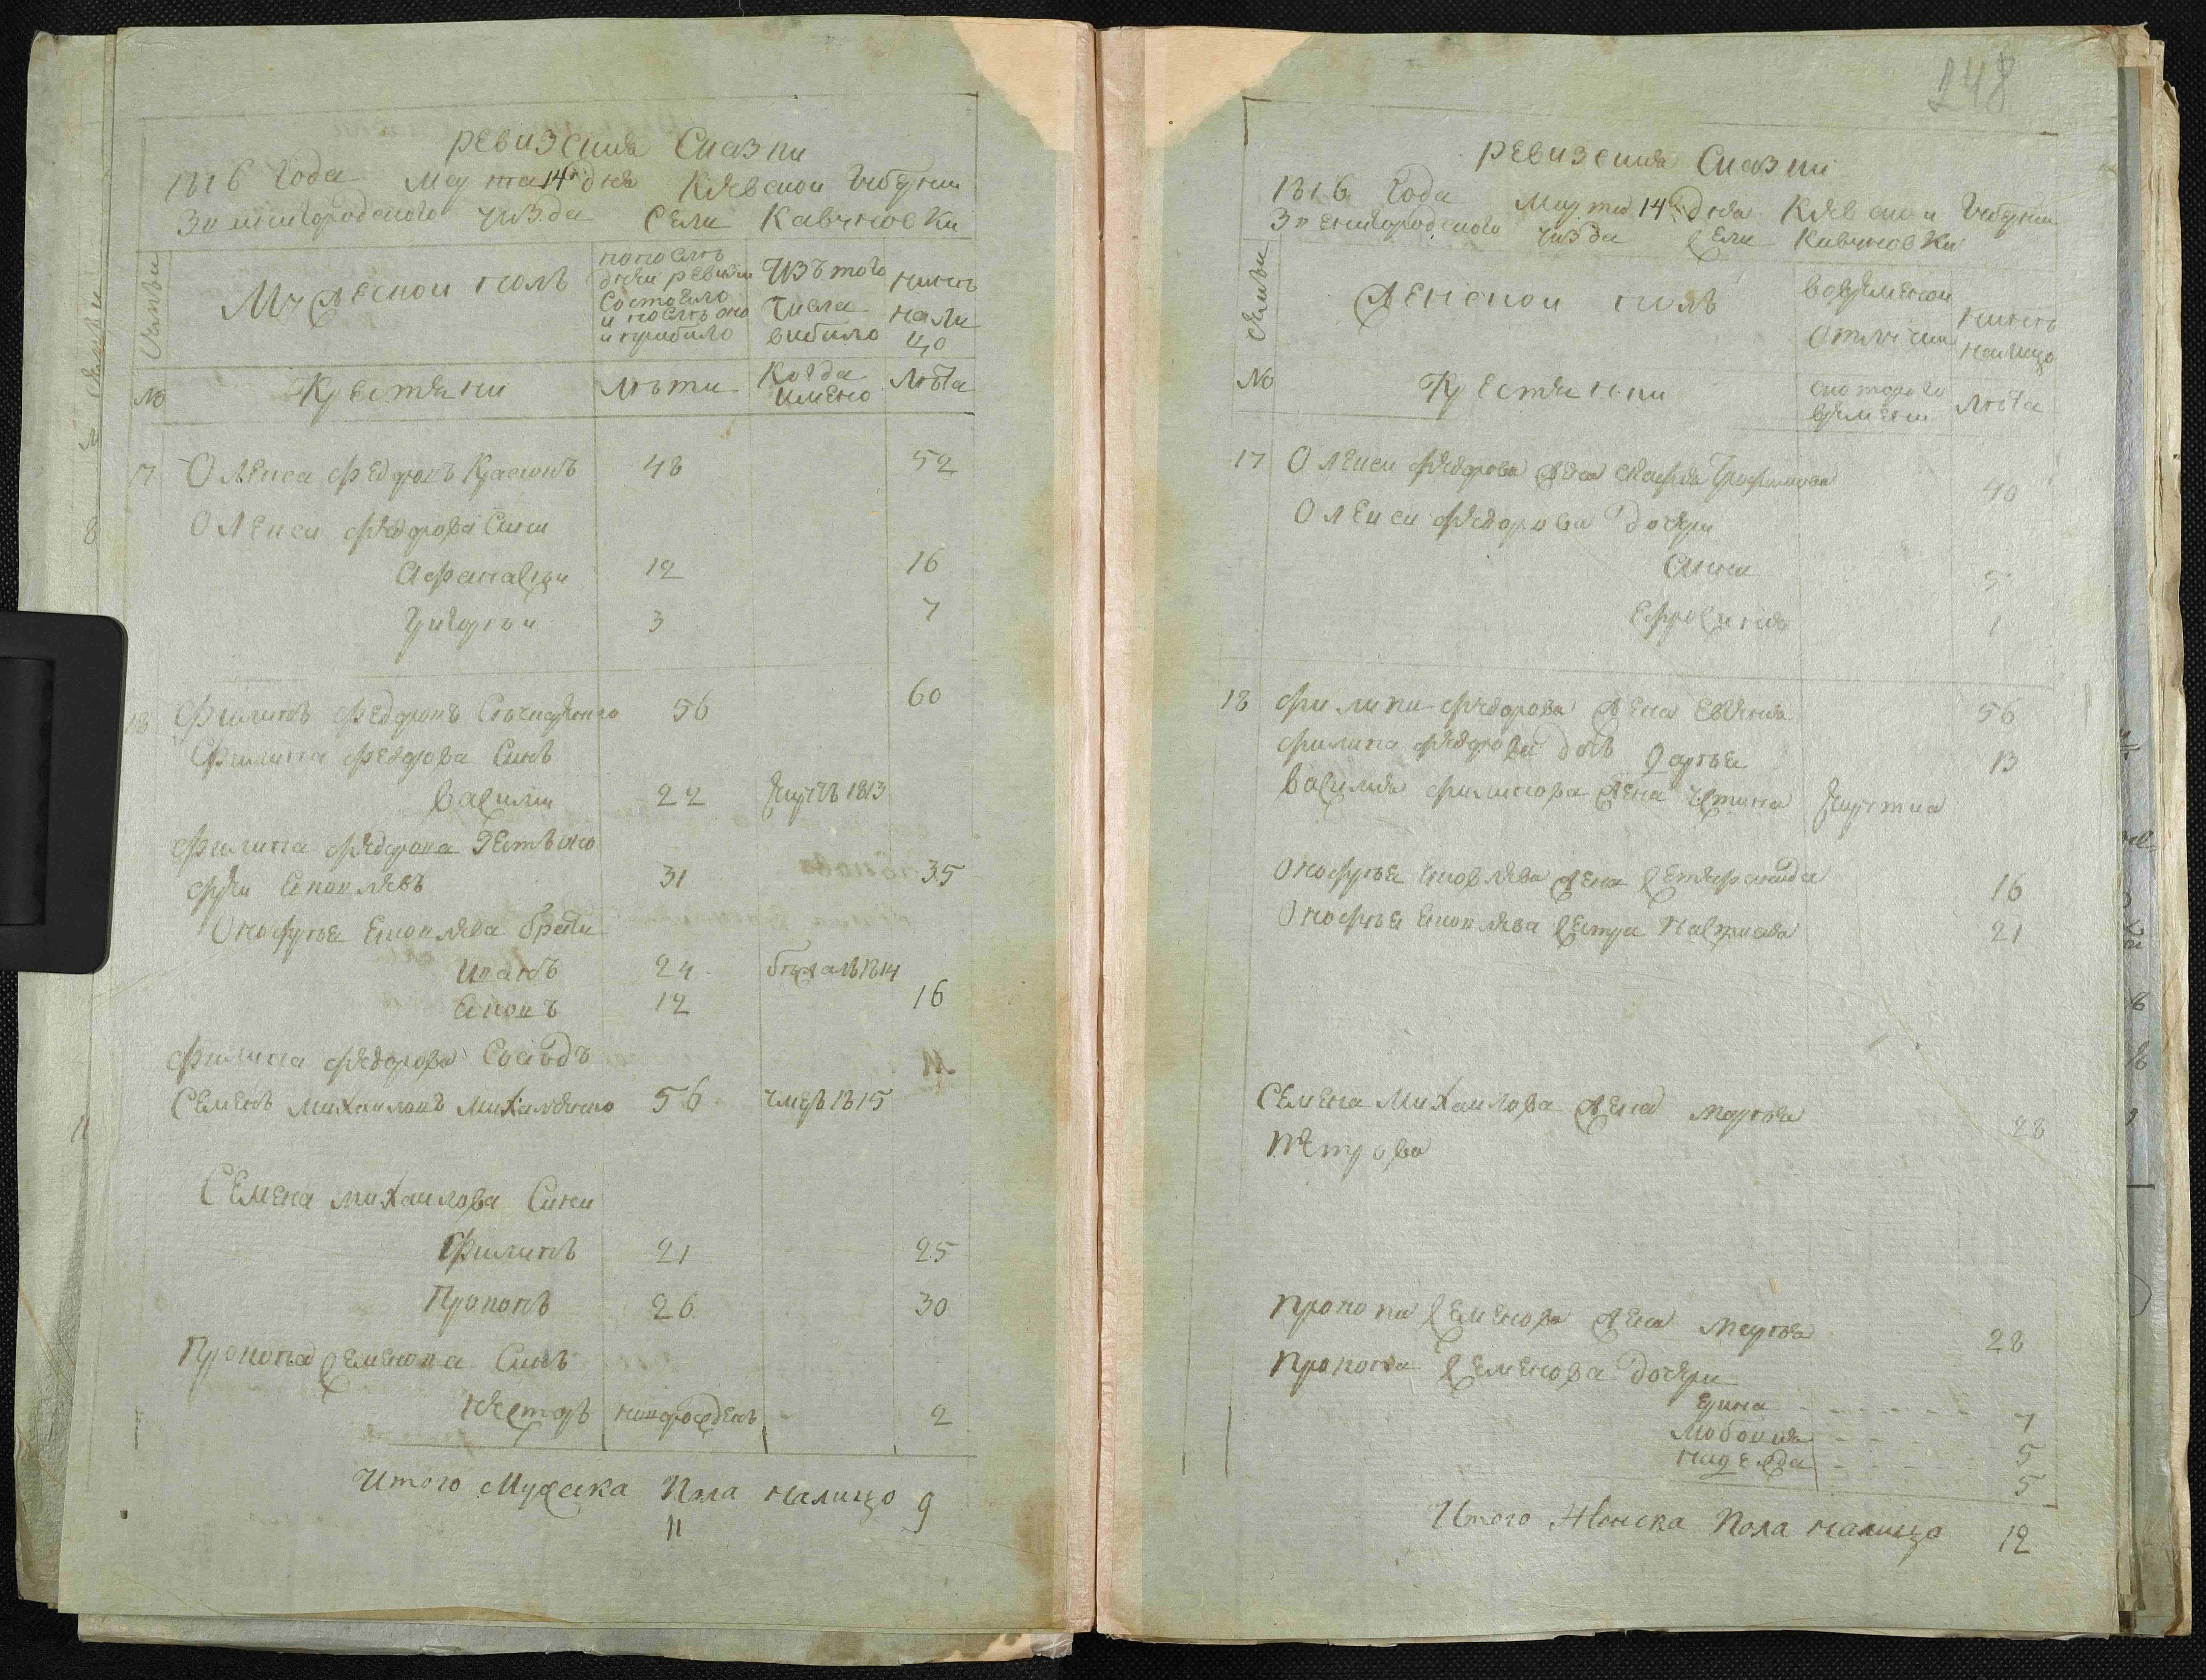 ревизския Сказки
1816 года Марта 14 дня Киевской губернии
Звенигородского уезда Села Кавуновки
Мужеской полъ
по последней ревизии состояло и после оно и прибыло
Изъ того числа выбыло
ныне на лицо
№ Крестяни Лѣти Когда имено Лѣта
17 Олекса Федоровъ Красюкъ 48 52
Олекси Федорова Сини
Афанасии 12 16
Григорѣи 3 7
18 Филипъ Федоровъ 56 60
Филипа Федорова Синъ
Василии 22 1813
Филипа Федорова Зеть Оно
фрѣи Яковлевъ 31 35
Онофрѣя Яковлева Брати
Игнатъ 24 бежалъ 1814
Яковъ 12 16
Филипа Федорова Сосѣдъ
Семенъ Михаиловъ Михаленко 56 умеръ 1815
Семена Михаилова Сини
Филипъ 21 25
Прокопъ 26 30
Прокопа Семенова Синъ
Несторъ новорожденъ 2
Итого Мужска Пола налицо 9
11
248
ревизския Сказки
1816 года Марта 14 дня Киевской губернии
Звенигородского уезда Села Кавуновки
Женской полъ
во временой отлучки
ныне налицо
№ Крестянки
с которого времени
Лѣта
17 Олекси Федорова жена Трофимова 40
Олекси Федорова дочери
Анна 5
Ефросиния 1
18 Филипа Федорова жена Евгения 56
Филипа Федорова дочь Дарья 13
Василия Филипова жена Устина
Онофрѣя Яковлева жена Стефанида 16
Онофрѣя Яковлева сестра Настасия 21
Семена Михаилова жена Марѣя 28
Петрова
Прокопа Семенова жена Марѣя 28
Прокопа Семенова дочери
Ирина 7
Любовия 5
Надежда 5
Итого Женска Пола налицо 12